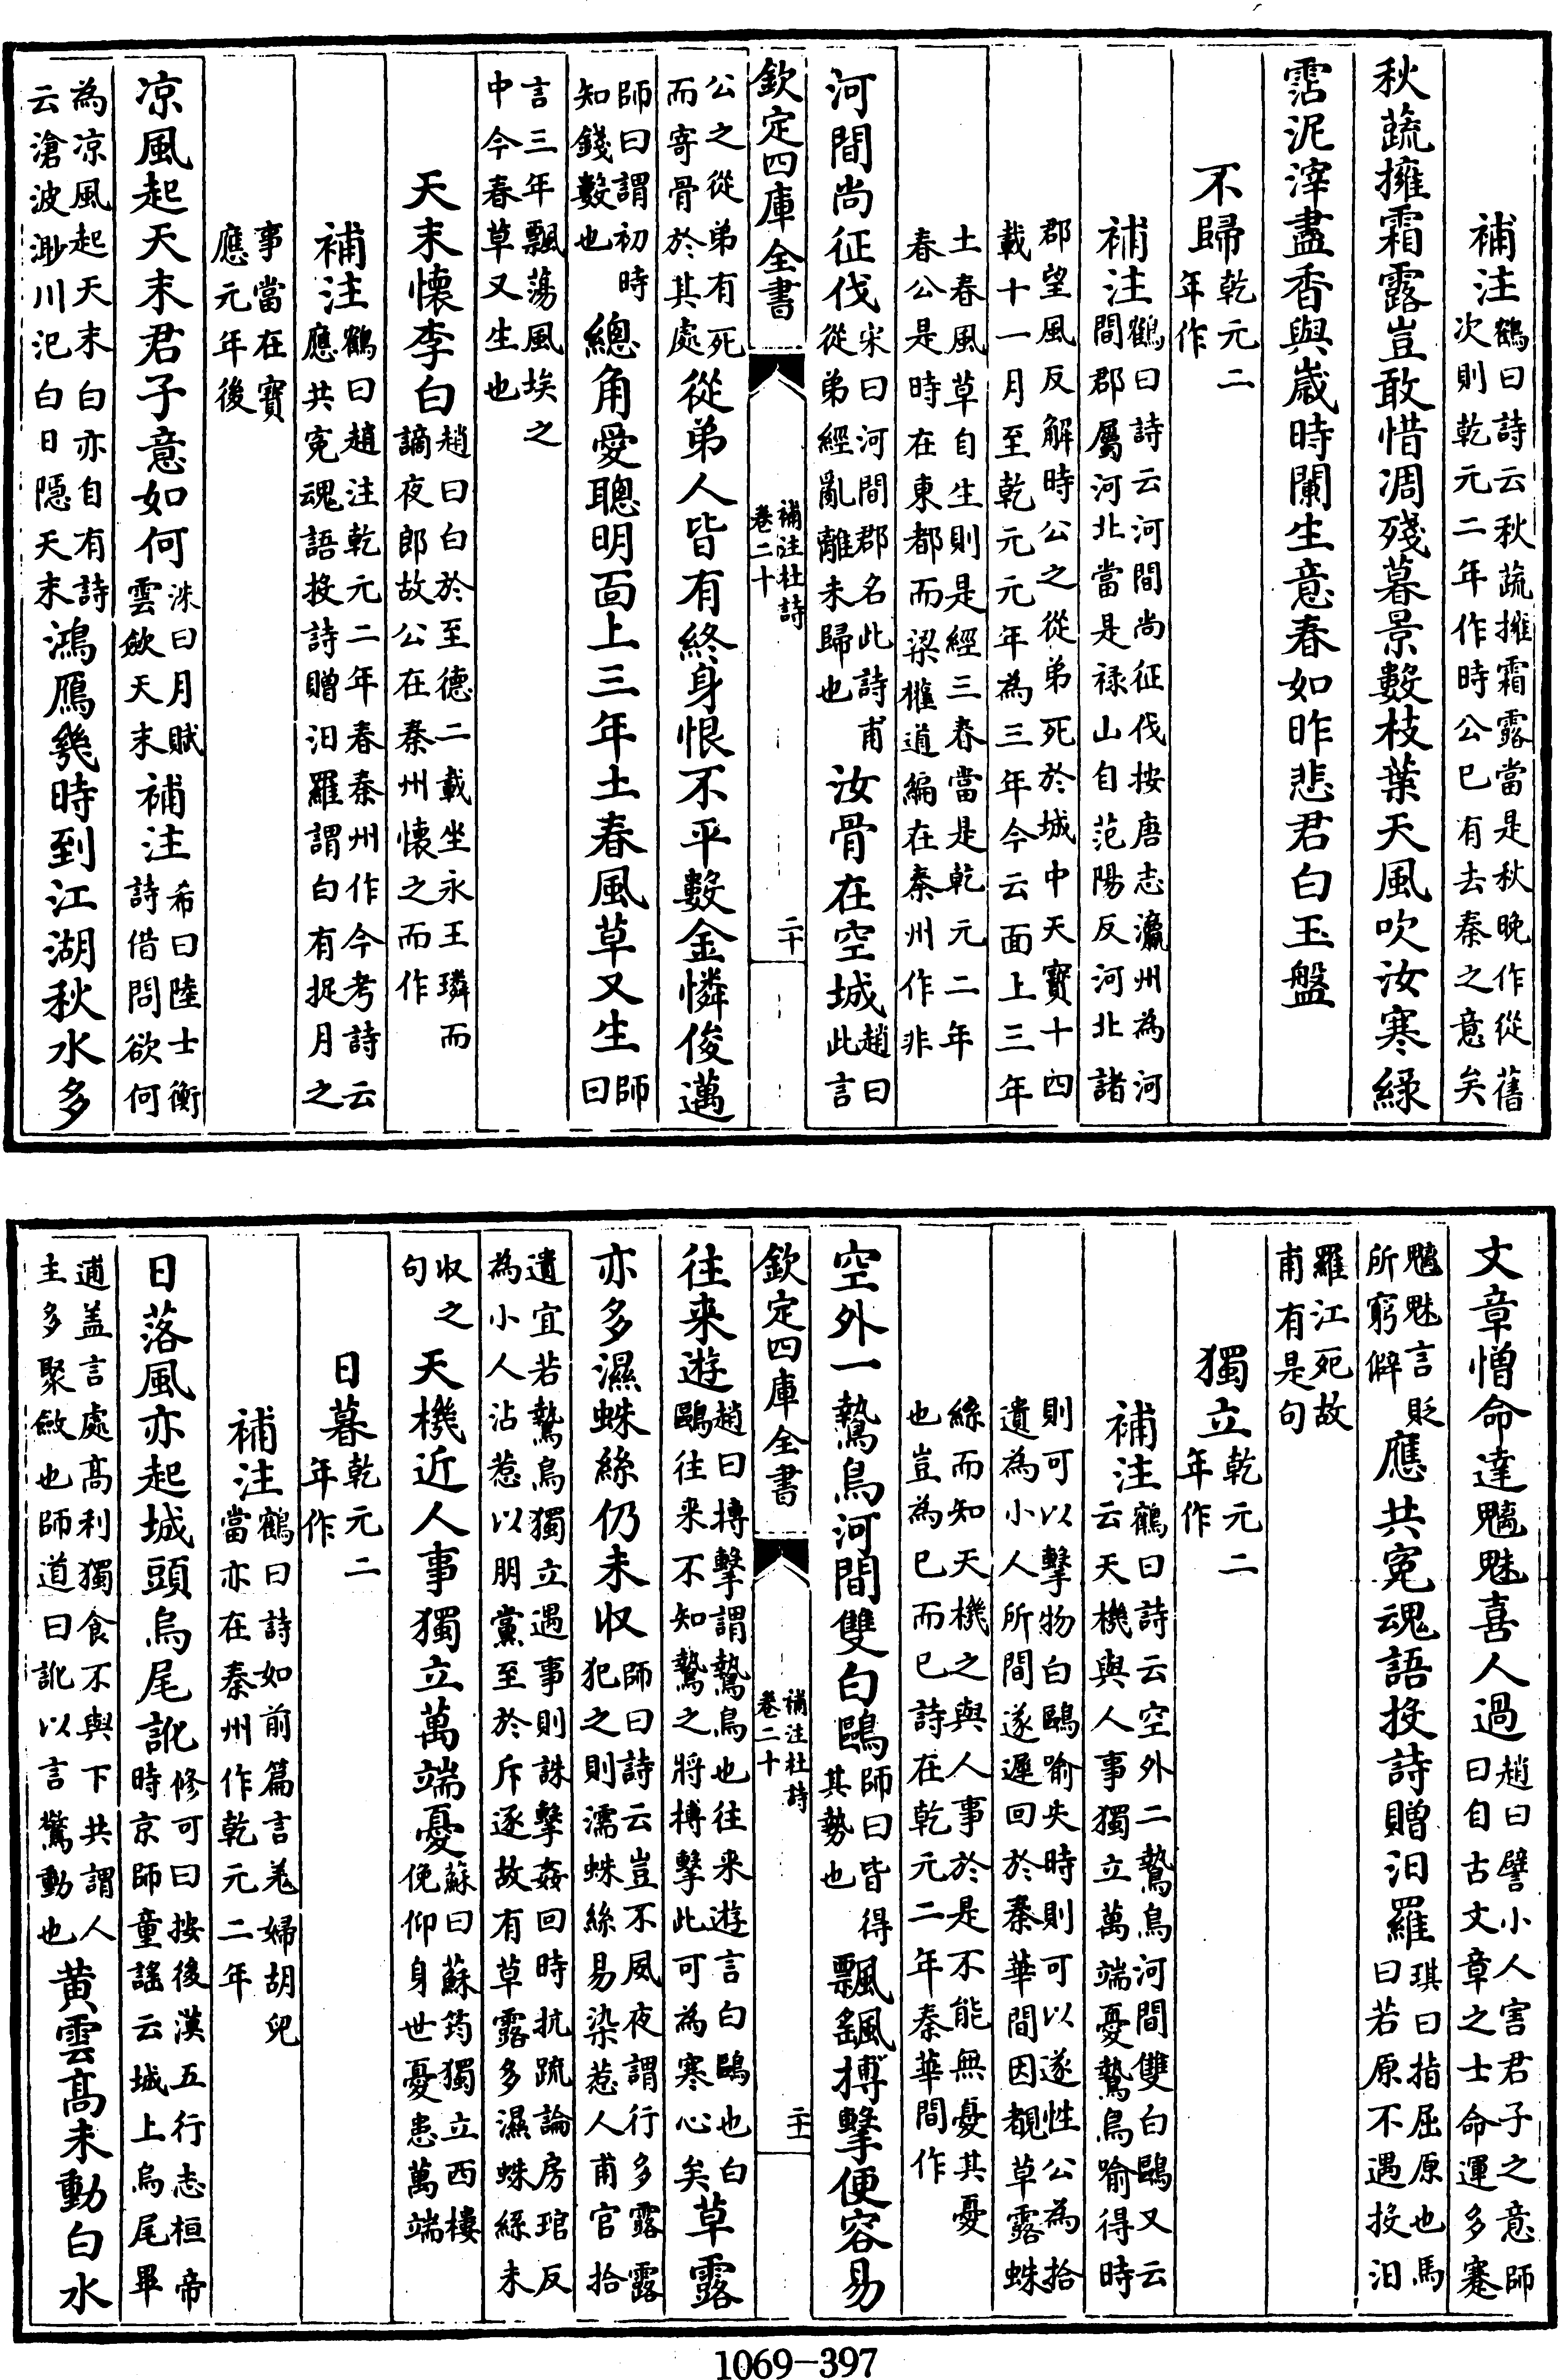 補注鶴曰詩云秋蔬擁霜露當是秋晚作從舊次則乾元二年作時公已有去秦之意矣
秋蔬擁霜露豈敢惜凋殘暮景數枝葉天風吹汝寒綠
霑泥滓盡香與歲時闌生意春如昨悲君白玉盤
不歸乾元二年作
補注鶴曰詩云河間尚征伐按唐志瀛州為河間郡屬河北當是祿山自范陽反河北諸
郡望風反解時公之從弟死於城中天寶十四載十一月至乾元元年為三年今云面上三年
土春風草自生則是經三春當是乾元二年春公是時在東都而梁權道編在秦州作非
河間尚征伐宋曰河間郡名此詩甫從弟經亂離未歸也汝骨在空城趙曰此言
欽定四庫全書
補注杜詩
卷二十
二十
公之從弟有死而寄骨於其處從弟人皆有終身恨不平數金憐俊邁
師曰謂初時知錢數也總角愛聰明面上三年土春風草又生師曰
言三年飄蕩風埃之中今春草又生也
天末懷李白趙曰白於至德二載坐永王璘而謫夜郎故公在秦州懷之而作
補注鶴曰趙注乾元二年春秦州作今考詩云應共冤魂語投詩贈汨羅謂白有捉月之
事當在寶應元年後
凉風起天末君子意如何洙曰月賦雲斂天末補注希曰陸士衡詩借問欲何
為凉風起天末白亦自有詩云滄波渺川汜白日隱天末鴻鴈幾時到江湖秋水多
文章憎命達魑魅喜人過趙曰譬小人害君子之意師曰自古文章之士命運多蹇
魑魅言貶所窮僻應共冤魂語投詩贈汨羅琪曰指屈原也馬曰若原不遇投汨
羅江死故甫有是句
獨立乾元二年作
補注鶴曰詩云空外二鷙鳥河間雙白鷗又云云天機與人事獨立萬端憂鷙鳥喻得時
則可以擊物白鷗喻失時則可以遂性公為拾遺為小人所間遂遲回於秦華間因覩草露蛛
絲而知天機之與人事於是不能無憂其憂也豈為已而已詩在乾元二年秦華間作
空外一鷙鳥河間雙白鷗師曰皆得其勢也飄颻搏擊便容易
欽定四庫全書
補注杜詩
卷二十
二十一
往来遊趙曰搏擊謂鷙鳥也往来遊言白鷗也白鷗往来不知鷙之將搏擊此可為寒心矣草露
亦多濕蛛絲仍未收師曰詩云豈不夙夜謂行多露露犯之則濡蛛絲易染惹人甫官拾
遺宜若鷙鳥獨立遇事則誅擊姦回時抗疏論房琯反為小人沾惹以朋黨至於斥逐故有草露多濕蛛絲未
收之句天機近人事獨立萬端憂蘇曰蘇筠獨立西樓俛仰身世憂患萬端
日暮乾元二年作
補注鶴曰詩如前篇言羌婦胡兒當亦在秦州作乾元二年
日落風亦起城頭烏尾訛修可曰按後漢五行志桓帝時京師童謠云城上烏尾畢
逋盖言處高利獨食不與下共謂人主多聚斂也師道曰訛以言驚動也黄雲高未動白水
1069—397